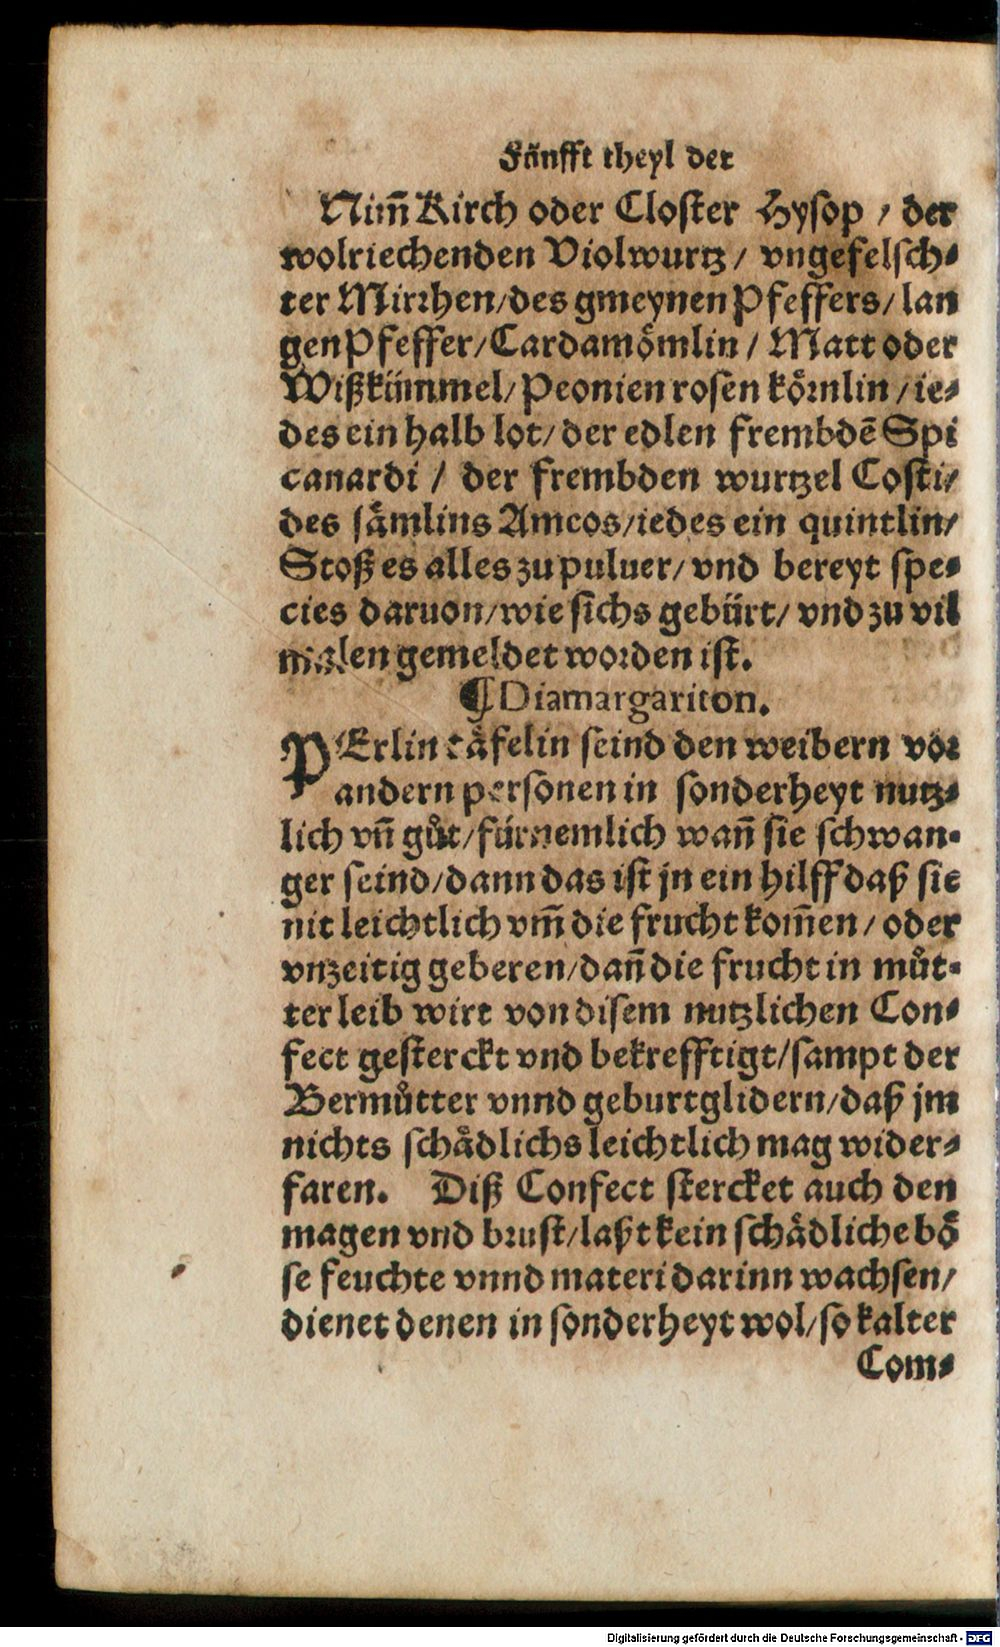 Fünfft theyl der
Nim̃ Kirch oder Closter Hysop / der
wolriechenden Violwurtz / vngefelsch⸗
ter Mirrhen / des gmeynen Pfeffers / lan
gen Pfeffer / Cardamoͤmlin / Matt oder
Wißkümmel / Peonien rosen koͤrnlin / ie⸗
des ein halb lot / der edlen frembdẽ Spi
canardi / der frembden wurtzel Costi /
des saͤmlins Ameos / iedes ein quintlin /
Stoß es alles zu puluer / vnd bereyt spe⸗
cies daruon / wie sichs gebürt / vnd zu vil
malen gemeldet worden ist.
¶ Diamargariton.
PErlin taͤfelin seind den weibern vor
andern personen in sonderheyt nutz⸗
lich vñ guͦt / fürnemlich wañ sie schwan⸗
ger seind / dann das ist jn ein hilff daß sie
nit leichtlich vm̃ die frucht kom̃en / oder
vnzeitig geberen / dañ die frucht in muͦt⸗
ter leib wirt von disem nutzlichen Con⸗
fect gesterckt vnd bekrefftigt / sampt der
Bermuͦtter vnnd geburtglidern / daß jm
nichts schaͤdlichs leichtlich mag wider⸗
faren. Diß Confect stercket auch den
magen vnd brust / laßt kein schaͤdliche boͤ
se feuchte vnnd materi darinn wachsen /
dienet denen in sonderheyt wol / so kalter
Com⸗
Digitalisierung gefördert durch die Deutsche Forschungsgemeinschaft - DFG